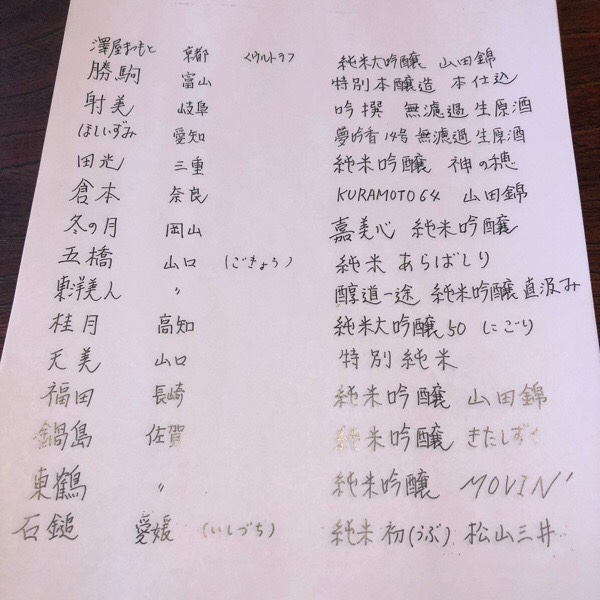 澤屋まつもと 京都 ウルトラ 純米大吟醸 山田錦
勝駒 富山 特別本醸造 本仕込
射美 岐阜 吟撰 無濾過生原酒
ほしいずみ 愛知 夢吟香14号 無濾過生原酒
田光 三重 純米吟醸 神の穂
倉本 奈良 KURAMOTO64 山田錦
冬の月 岡山 嘉美心 純米吟醸
五橋 山口 (ごきょう) 純米 あらばしり
東洋美人 〃 醇道一途 純米吟醸 直汲み
桂月 高知 純米大吟醸50 にごり
天美 山口 特別純米
福田 長崎 純米吟醸 山田錦
鍋島 佐賀 純米吟醸 きたしずく
東鶴 〃 純米吟醸 MOVIN'
石鎚 愛媛 (いしづち) 純米 初(うぶ) 松山三井